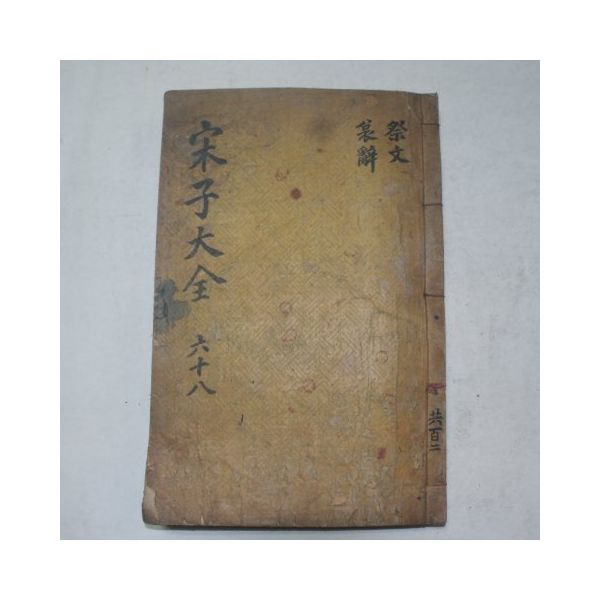 祭文
哀辭
宋子大全 六十八
共百二